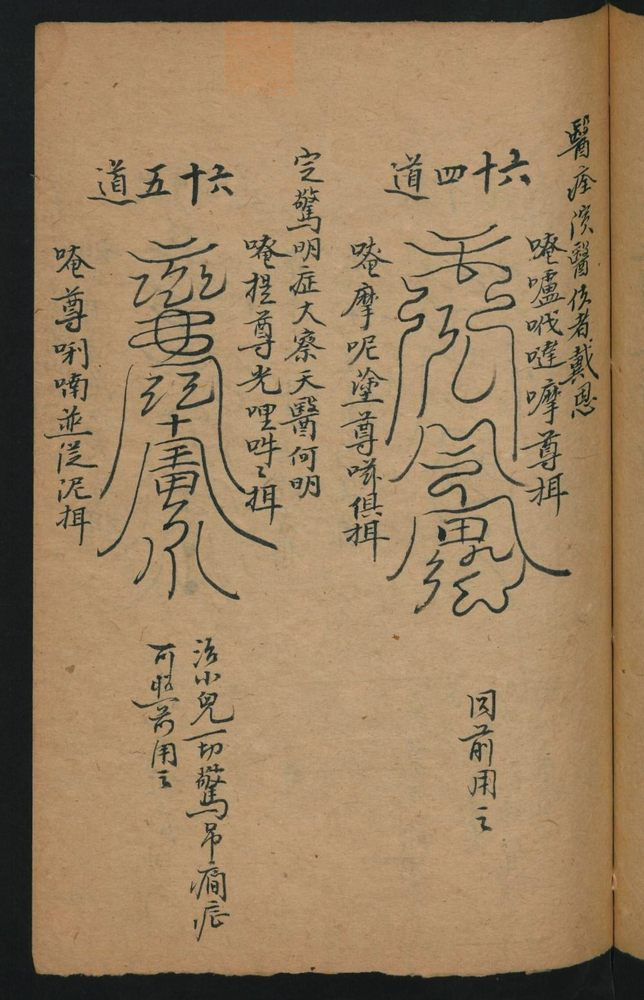 醫痊濱醫後者戴恩
六十四道
唵嚧哦噠摩尊揖
唵摩呢塗尊囌俱揖
同前用之
定驚明症大察天醫何明
六十五道
唵提尊光哩吽吽揖
唵尊唎喃並從泥揖
治小兒一切驚吊癇症
可照前用之